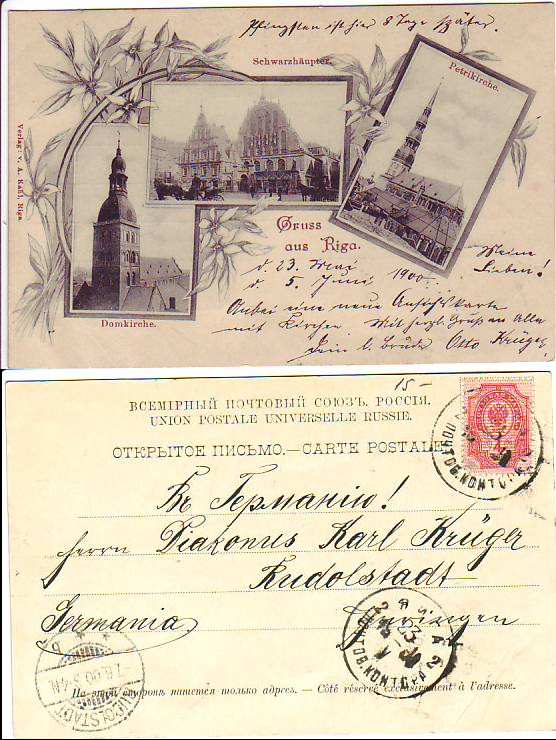 Pfingsten ist hier 8 Tage später.
Schwarzhäupter.
Petrikirche.
Verlag: v. A. Kahl, Riga.
Gruss
aus Riga.
Domkirche.
Meine
Lieben!
d. 23. Mai
d. 5. Juni 1900.
Anbei eine neue Ansichtskarte
mit Kirchen. Mit herzl. Gruß an Alle
Dein l. Bruder Otto Krüger
15-
ВСЕМІРНЫЙ ПОЧТОВЫЙ СОЮЗЪ. РОССІЯ.
UNION POSTALE UNIVERSELLE RUSSIE.
ОТКРЫТОЕ ПИСЬМО.—CARTE POSTALE
Въ Германію!
Herrn Diakonus Karl Krüger
Rudolstadt
Germania.
Thüringen
РИГА
ПОЧТОВ. КОНТОРА
7.6.00
RUDOLSTADT
На этой сторонѣ пишется только адресъ. — Côté réservé exclusivement à l'adresse.